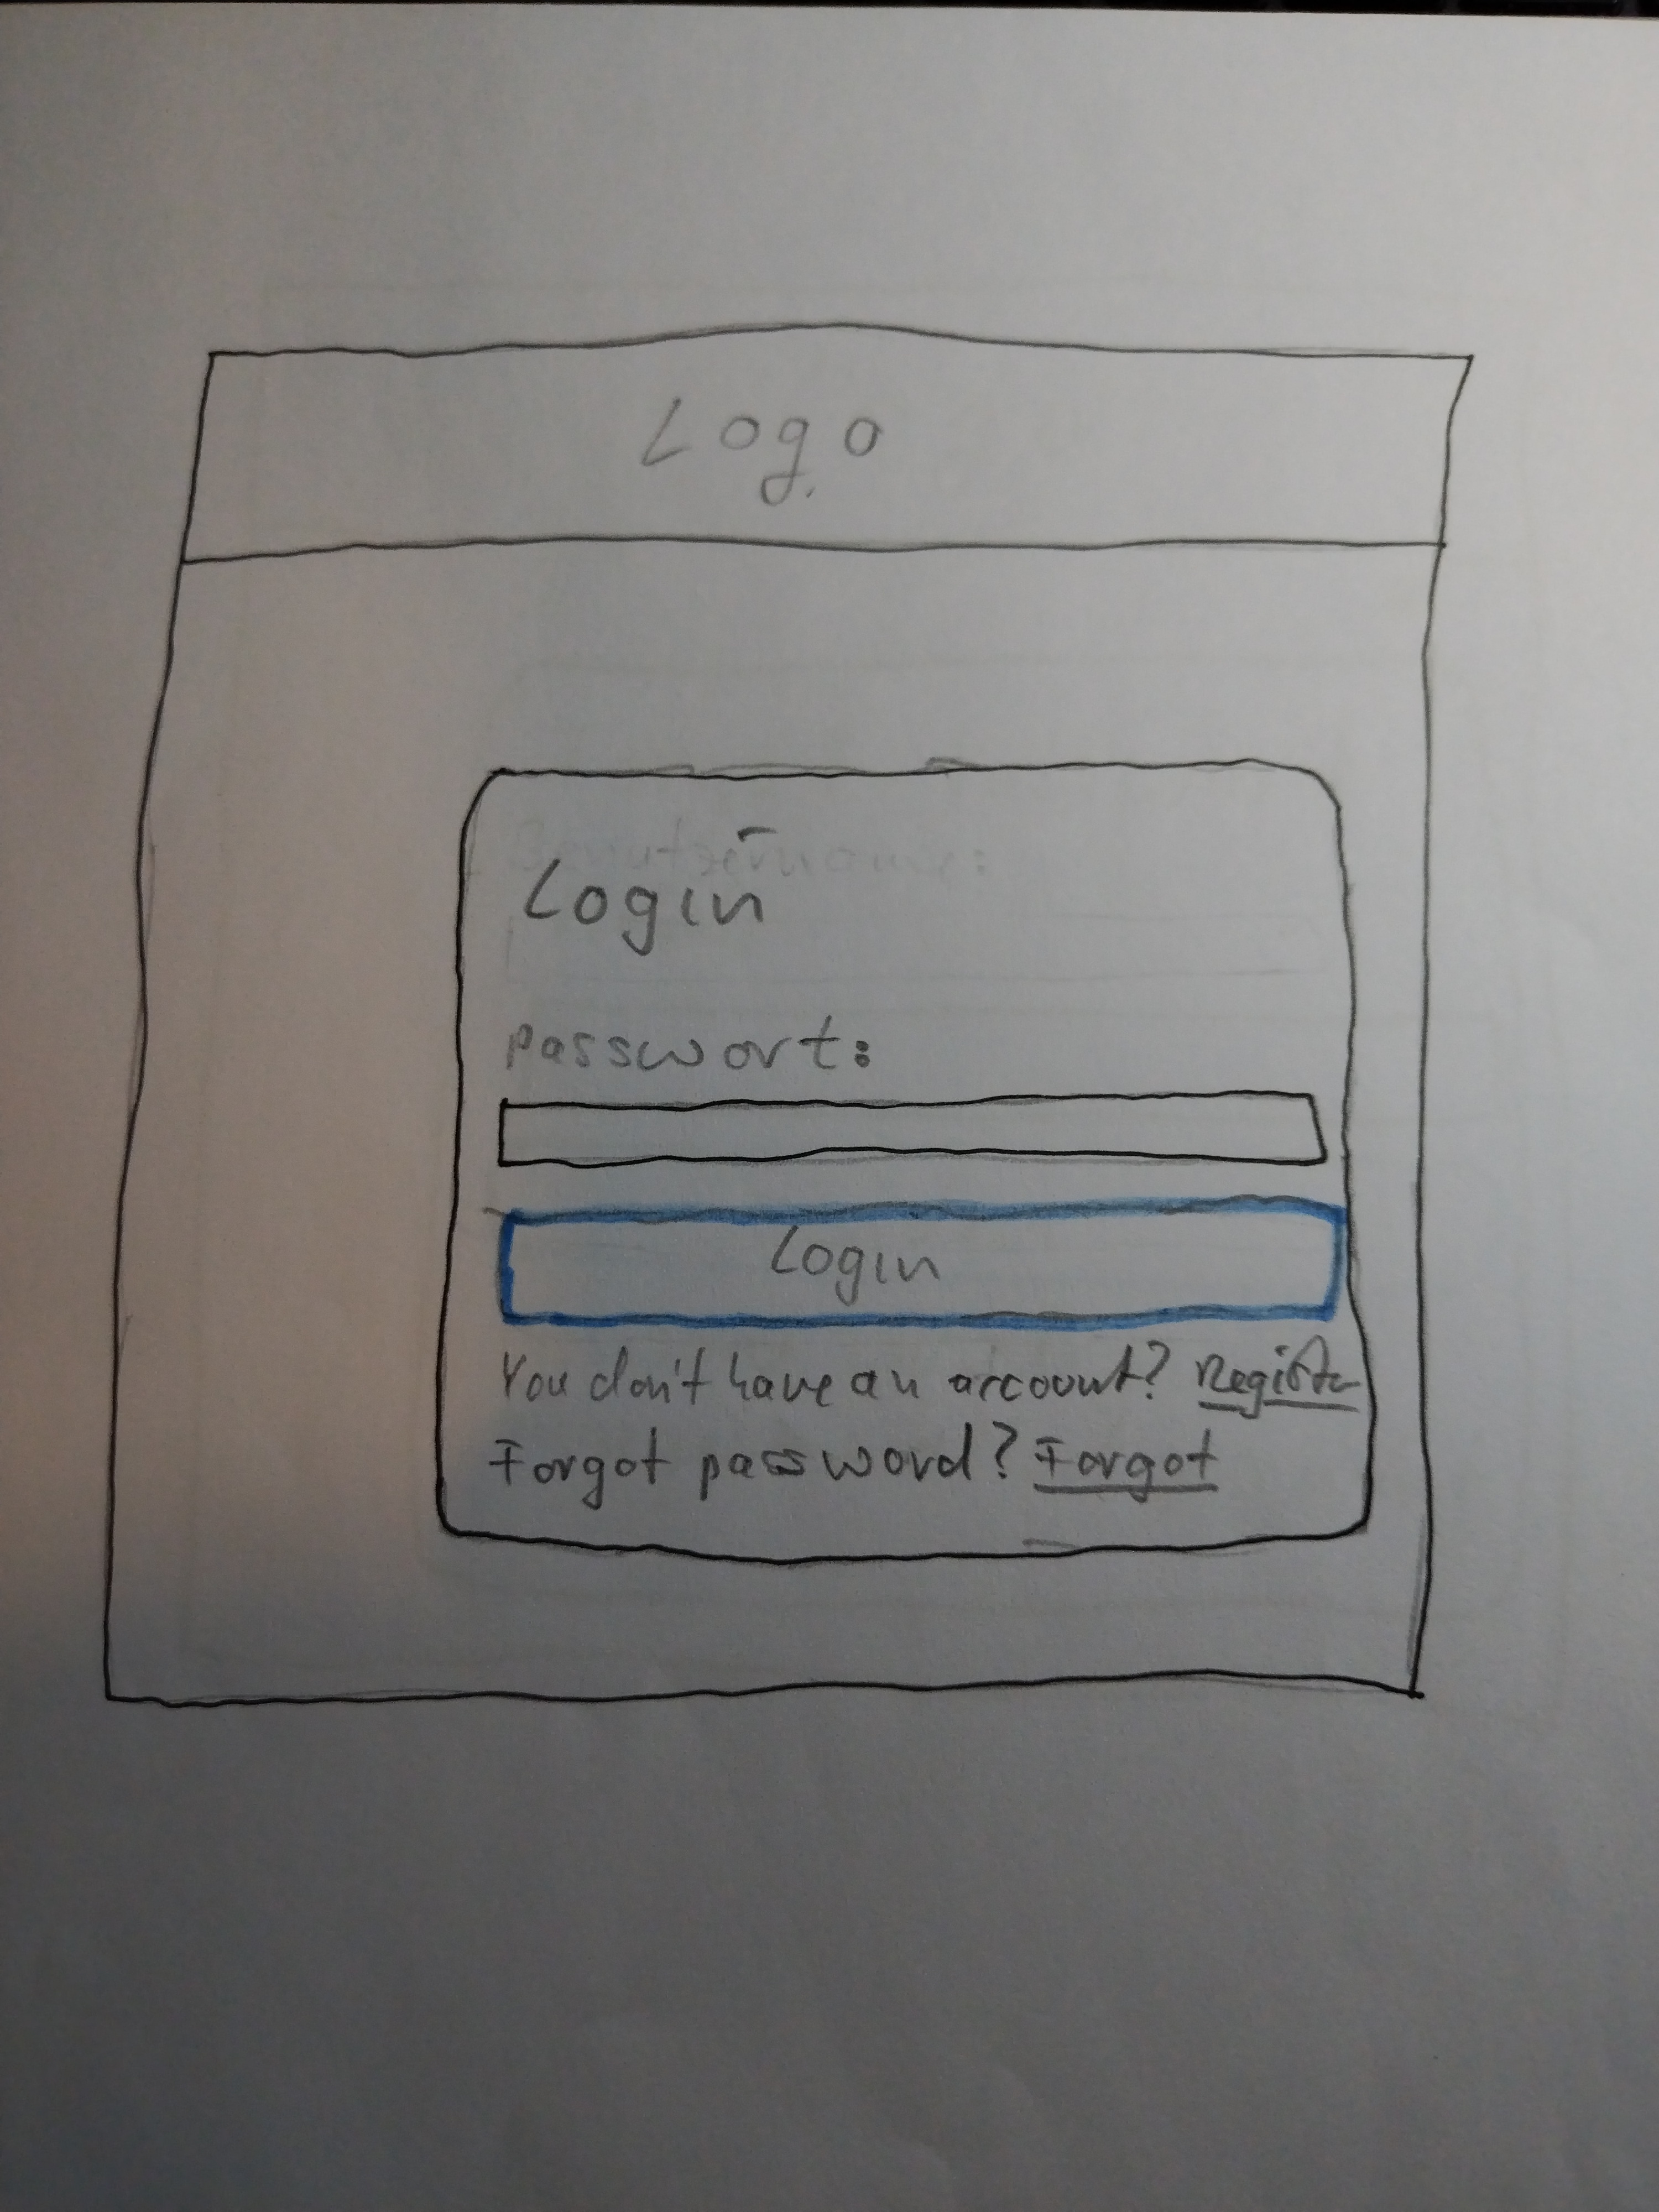 Logo
Benutzername:
Login
Passwort:
Login
You don't have an account? Register
Forgot password? Forgot